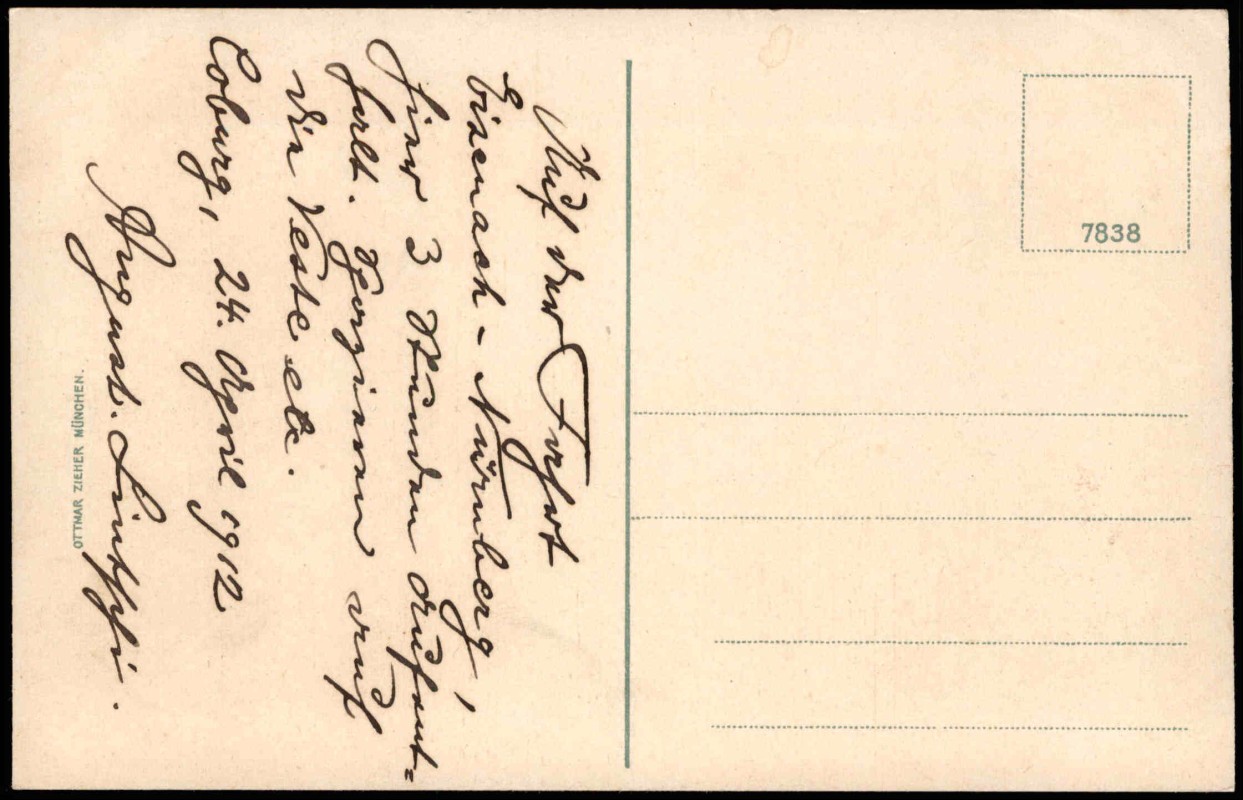 Auf der Fahrt
Eisenach - Nürnberg,
hier 3 Stunden Aufent=
halt. Spazieren auf
die Veste etc.
Coburg, 24. April 1912
August.
OTTMAR ZIEHER MÜNCHEN.
7838